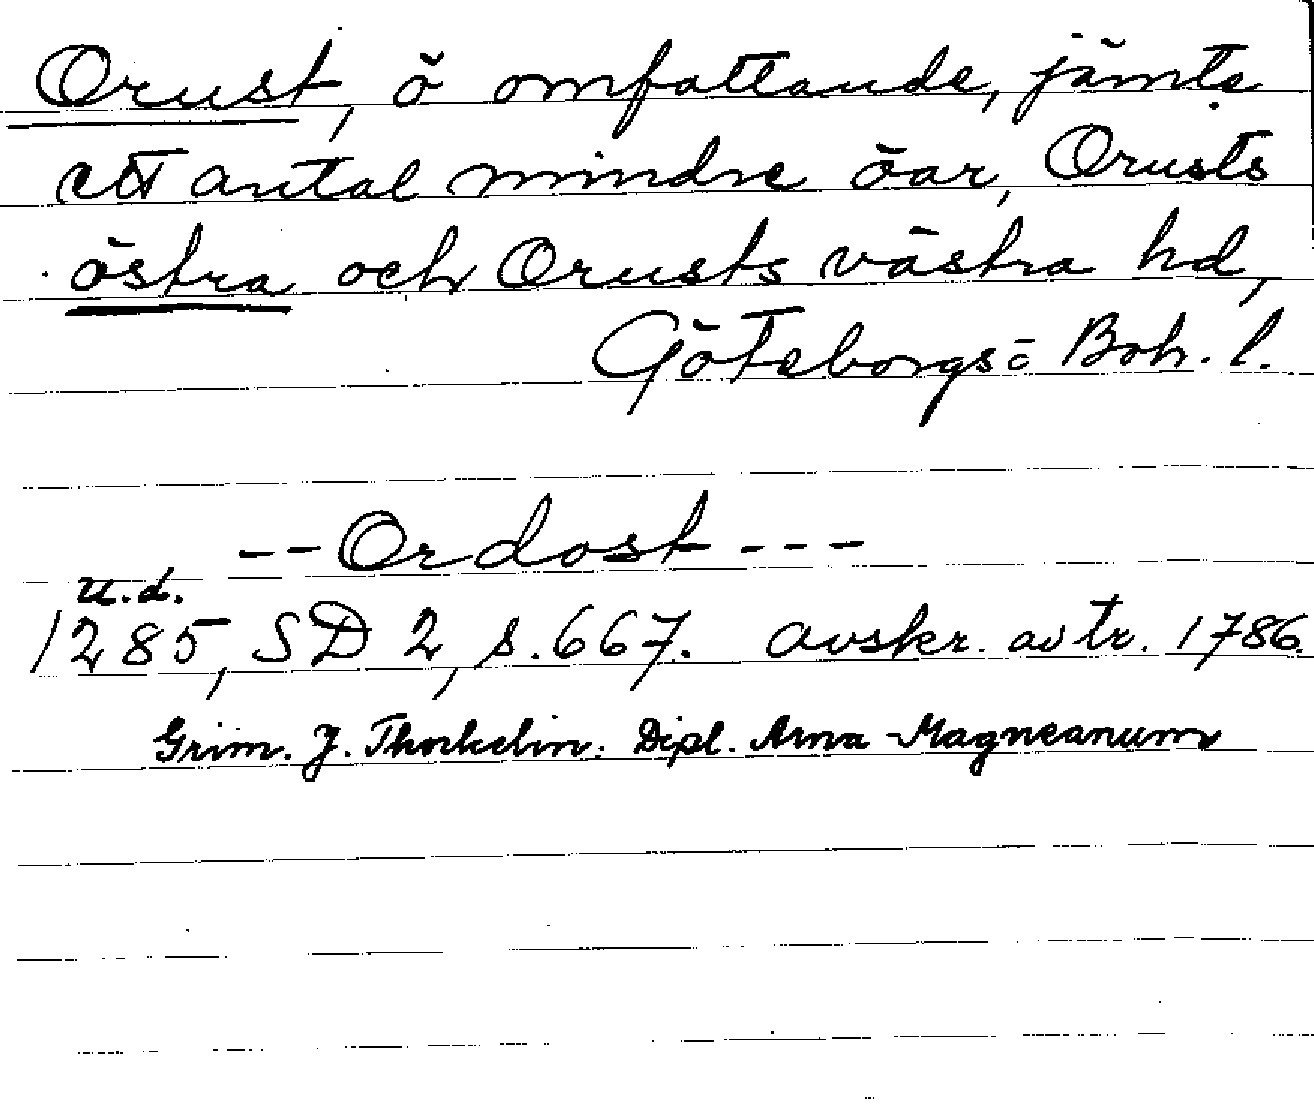 Orust, ö omfattande, jämte
ett antal mindre öar, Orusts
östra och Orusts västra hd,
Göteborgs o Boh. l.
-- Ordost ---
u.d.
1285, SD 2, s. 667. avskr. av tr. 1786.
Grim. J. Thorkelin. Dipl. Arna-Magneanum